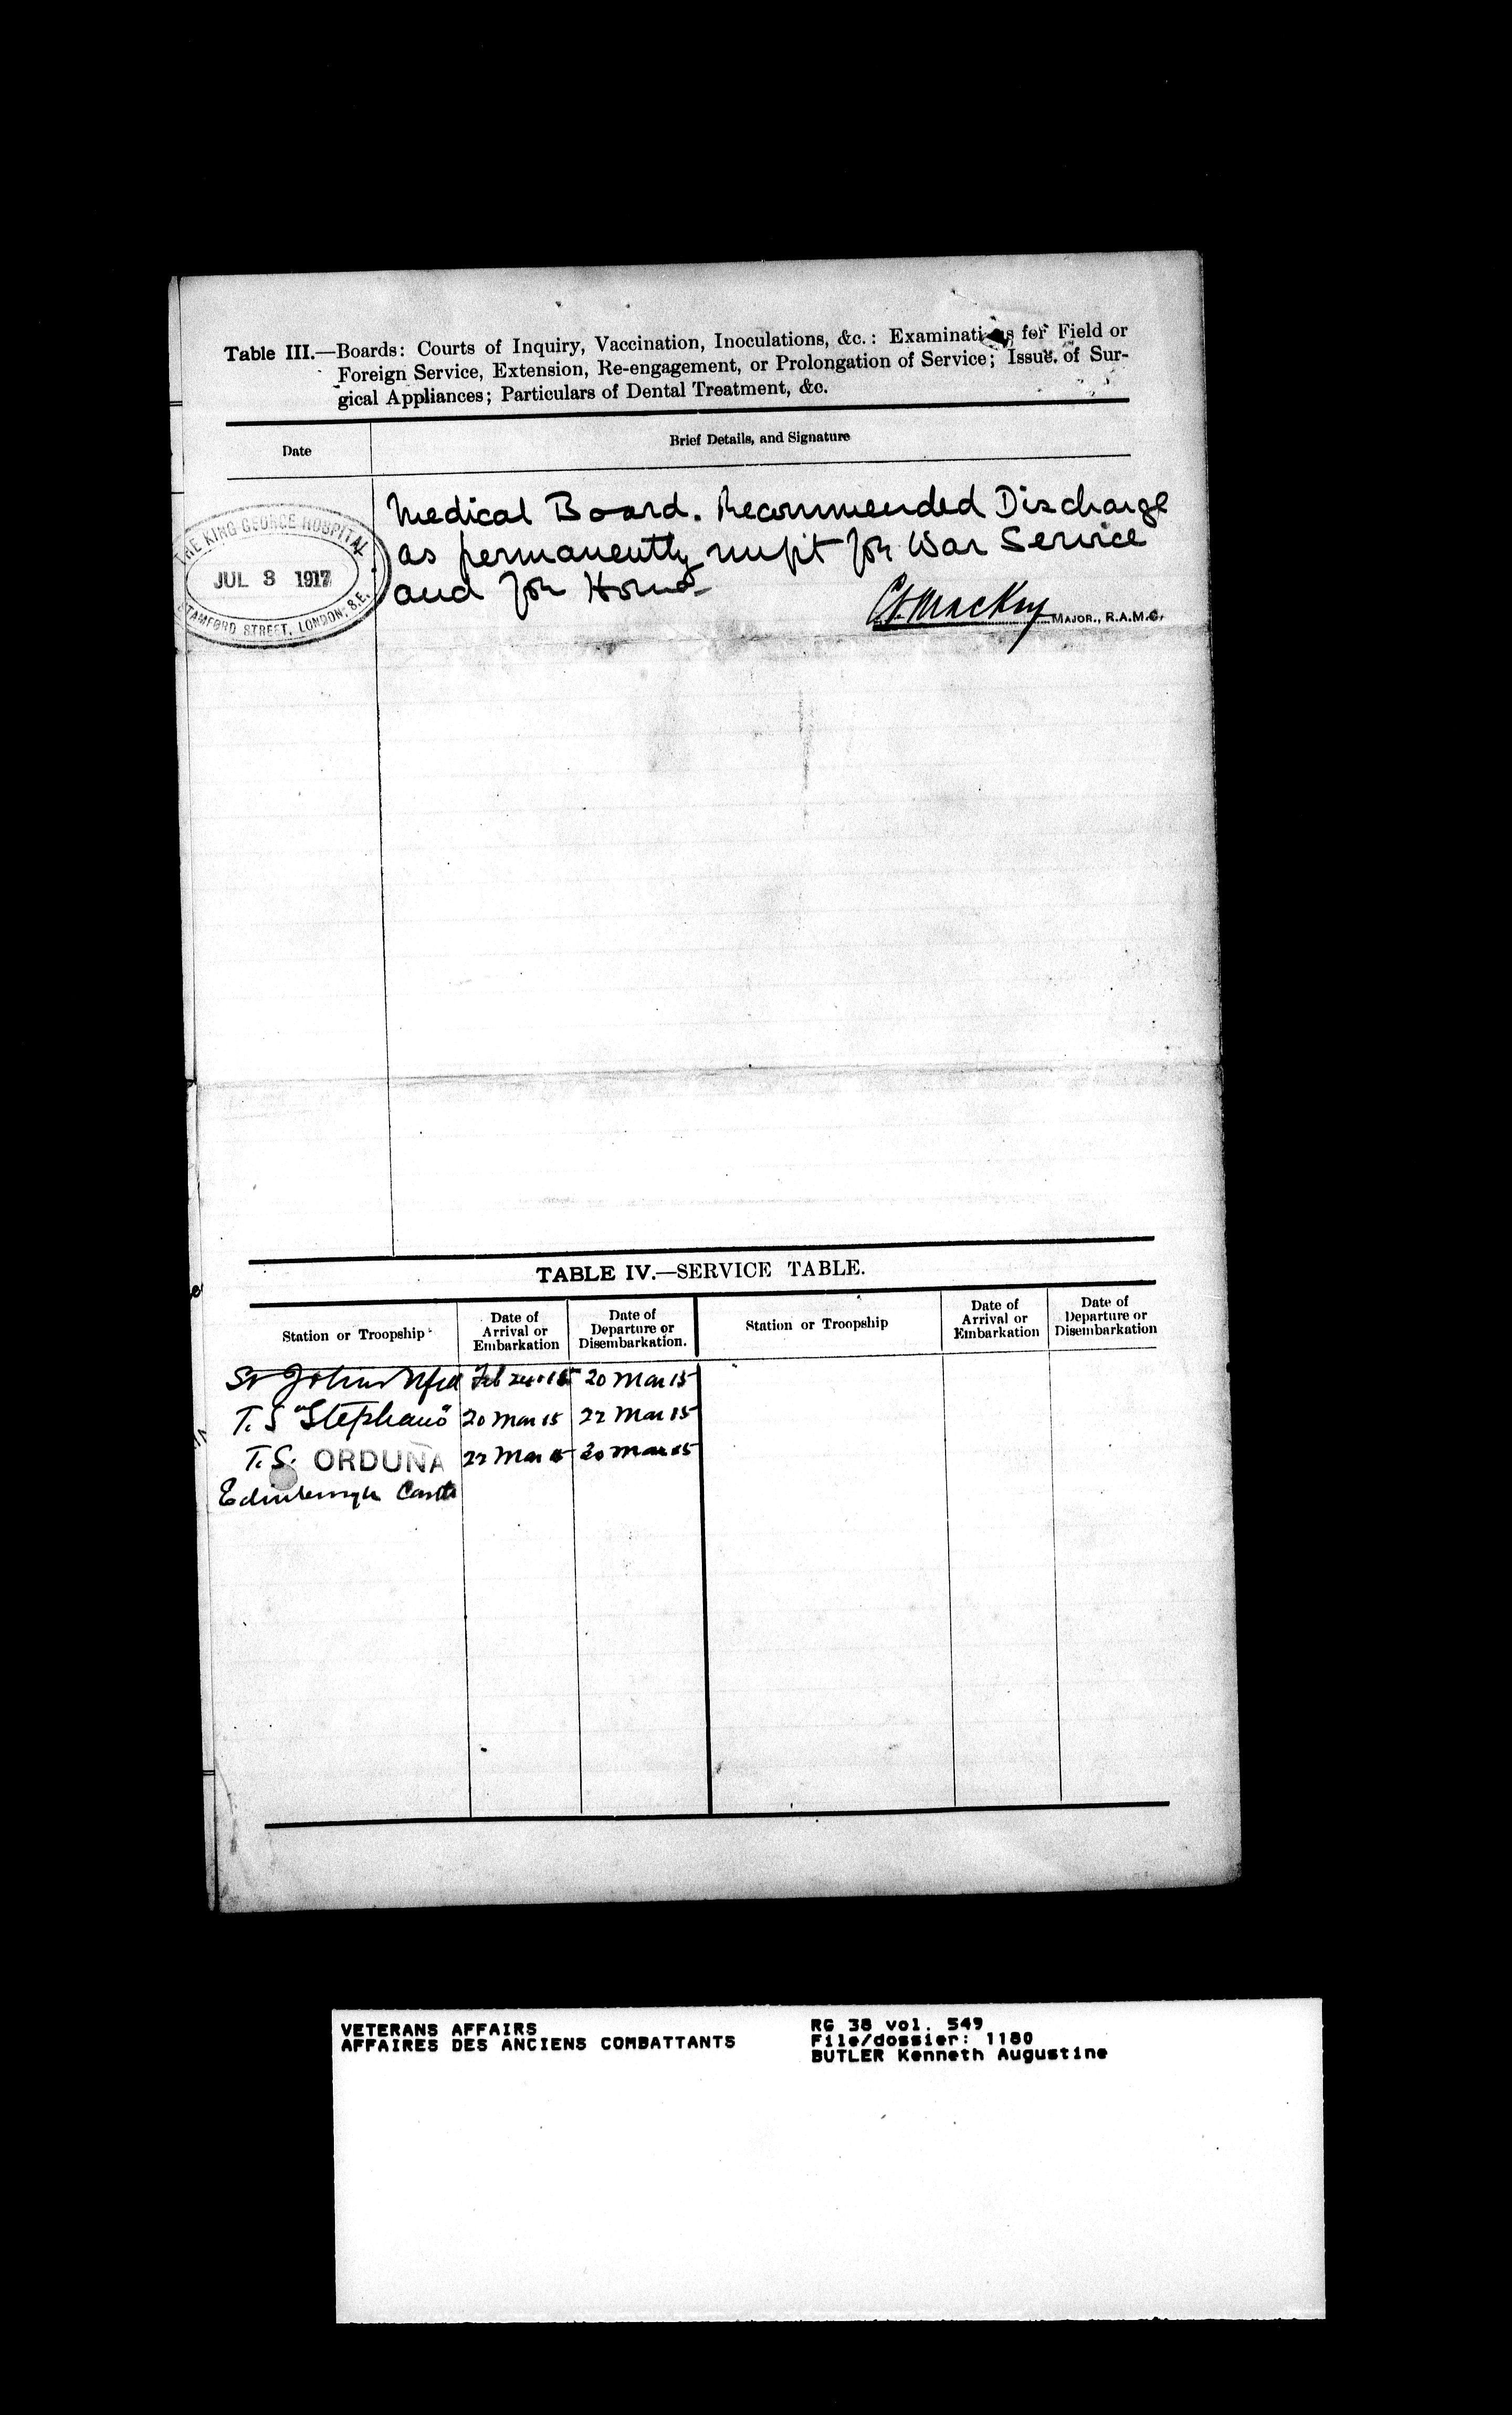 Table III.—Boards: Courts of Inquiry, Vaccination, Inoculations, &c.: Examinations for Field or
Foreign Service, Extension, Re-engagement, or Prolongation of Service; Issue of Sur-
gical Appliances; Particulars of Dental Treatment, &c.
Date
Brief Details, and Signature
THE KING GEORGE HOSPITAL
JUL 3 1917
STAMFORD STREET, LONDON, S.E.
Medical Board. Recommended Discharge
as permanently unfit for War Service
and for Home
MacKay MAJOR., R.A.M.C.
TABLE IV.—SERVICE TABLE.
Station or Troopship Date of Arrival or Embarkation Date of Departure or Disembarkation. Station or Troopship Date of Arrival or Embarkation Date of Departure or Disembarkation
St Johns Nfld Feb 15 20 Mar 15
T.S "Stephano" 20 Mar 15 22 Mar 15
T.S. ORDUNA 22 Mar 15 30 Mar 15
Edinburgh Castle
VETERANS AFFAIRS
AFFAIRES DES ANCIENS COMBATTANTS
RG 38 vol. 549
File/dossier: 1180
BUTLER Kenneth Augustine